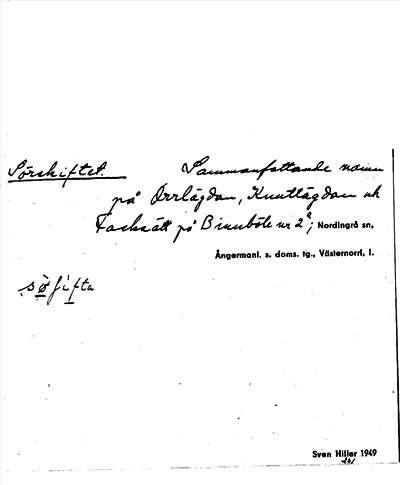 Sörskiftet. Sammanfattande namn
på Orrlägdan, Knutlägdan och
Backsätt på Binnböle nr 2²; Nordingrå sn,
Ångermanl. s. doms. tg., Västernorrl. l.
sø̀ʃifta
Sven Hiller 1949